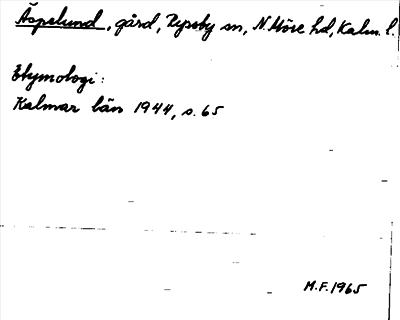 Äspelund, gård, Ryssby sn, N. Möre hd, Kalm. l.
Etymologi:
Kalmar län 1944, s. 65
M.F. 1965